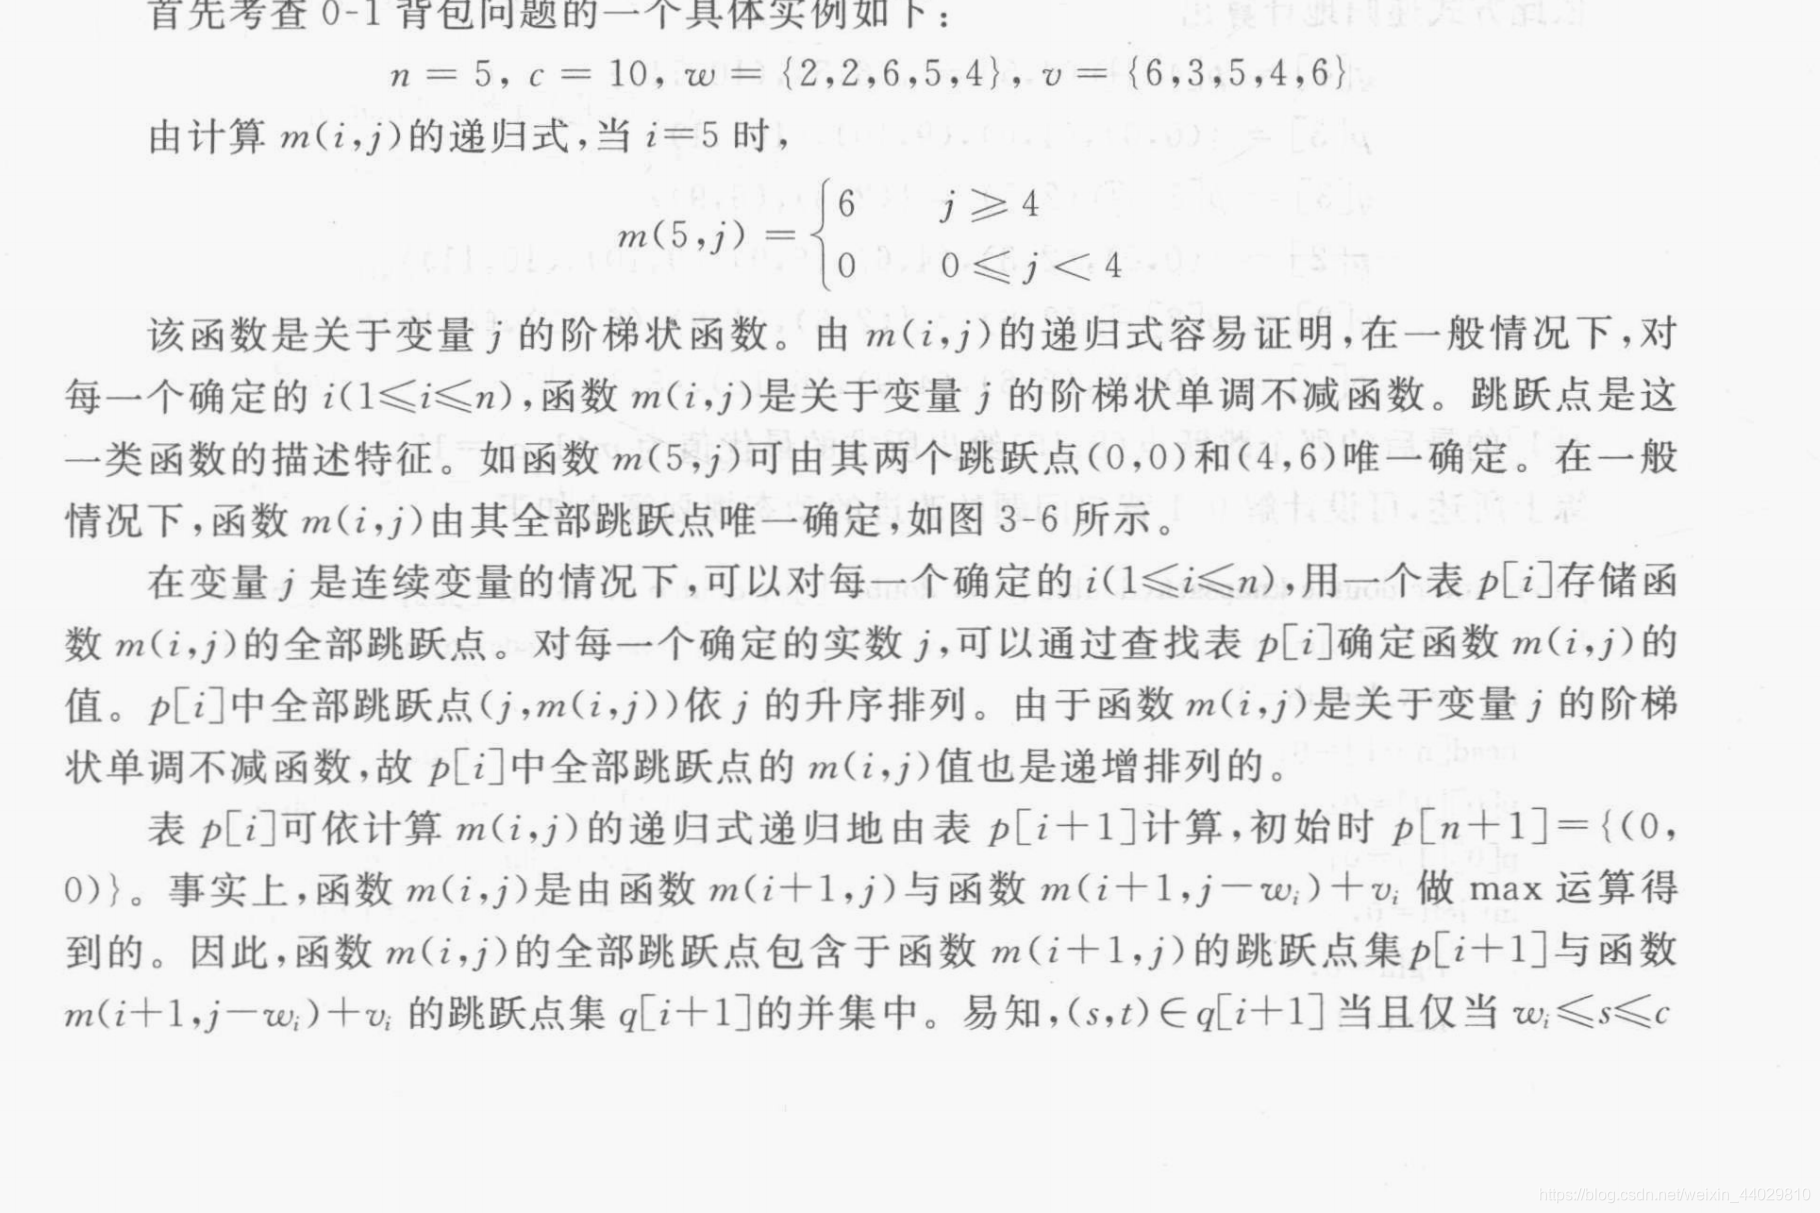 首先考查 0-1 背包问题的一个具体实例如下：
n = 5, c = 10, w = {2,2,6,5,4}, v = {6,3,5,4,6}
由计算 m(i,j)的递归式,当 i=5 时,
m(5,j) = {6 j ≥ 4
0 0 ≤ j < 4
该函数是关于变量 j 的阶梯状函数。由 m(i,j)的递归式容易证明,在一般情况下,对
每一个确定的 i(1≤i≤n),函数 m(i,j)是关于变量 j 的阶梯状单调不减函数。跳跃点是这
一类函数的描述特征。如函数 m(5,j)可由其两个跳跃点(0,0)和(4,6)唯一确定。在一般
情况下,函数 m(i,j)由其全部跳跃点唯一确定,如图 3-6 所示。
在变量 j 是连续变量的情况下,可以对每一个确定的 i(1≤i≤n),用一个表 p[i]存储函
数 m(i,j)的全部跳跃点。对每一个确定的实数 j,可以通过查找表 p[i]确定函数 m(i,j)的
值。p[i]中全部跳跃点(j,m(i,j))依 j 的升序排列。由于函数 m(i,j)是关于变量 j 的阶梯
状单调不减函数,故 p[i]中全部跳跃点的 m(i,j)值也是递增排列的。
表 p[i]可依计算 m(i,j)的递归式递归地由表 p[i+1]计算,初始时 p[n+1]={(0,
0)}。事实上,函数 m(i,j)是由函数 m(i+1,j)与函数 m(i+1,j-wᵢ)+vᵢ 做 max 运算得
到的。因此,函数 m(i,j)的全部跳跃点包含于函数 m(i+1,j)的跳跃点集p[i+1]与函数
m(i+1,j-wᵢ)+vᵢ 的跳跃点集 q[i+1]的并集中。易知,(s,t)∈q[i+1]当且仅当 wᵢ≤s≤c
https://blog.csdn.net/weixin_44029810